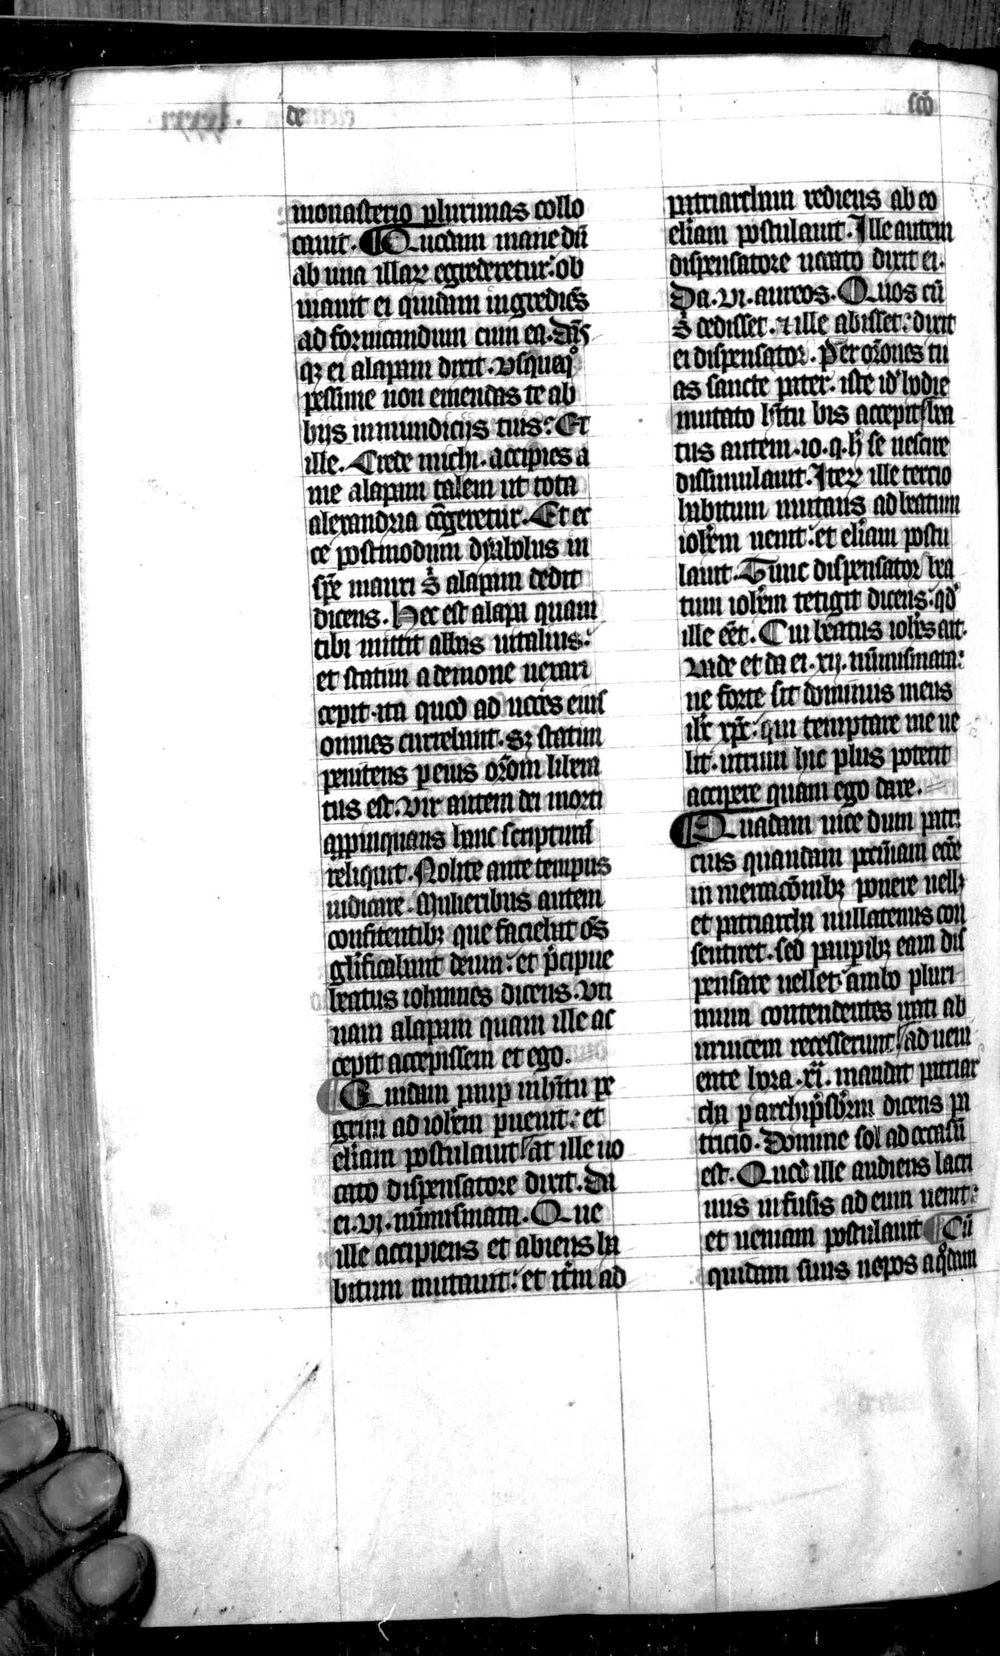 de
sco
monasterio plurimas collo
cauit. Quodam mane dū
ab una illaꝝ egrederetur: ob
uiauit ei quidam ingrediēs
ad fornicandum cum ea. Dās
qꝫ ei alapam dixit. Vsquaqͦ
pessime non emendas te ab
hijs inmundicijs tuis: Et
ille. Crede michi. accipies a
me alapam talem ut tota
alexandria cōgeretur. Et ec
ce postmodum dyabolus in
spē mauri ẜ alapam dedit
dicens. Hec est alapa quam
tibi mittit abbas uitalius:
et statim a demone uexari
cepit. ita quod ad uoces eius
omnes currebant. sꝫ statim
penitens p eius orōm libera
tus est. Vir autem dei morti
appinquans hanc scripturā
reliquit. Nolite ante tempus
iudicare. Mulieribus autem
confitentibꝫ que faciebat oēs
glificabunt deum: et p̄cipue
beatus iohannes dicens. Vti
nam alapam quam ille ac
cepit accepissem et ego.
Quidam paup in hitu pe
grini ad ioh̄em puenit: et
elīam postulauit at ille uo
cato dispensatore dixit. Da
ei. vi. nūmismata. Que
ille accipiens et abiens ha
bitum mutauit: et itm̄ ad
patriarcham rediens ab eo
elīam postulauit. Ille autem
dispensatore uocato dixit ei.
Da. vi. aureos. Quos cū
ẜ dedisset. ⁊ ille abisset: dixit
ei dispensator. Per orōnes tu
as sancte pater. iste id' hodie
mutato hītu bis accepit bea
tus autem. io. q. h̄ se nescire
dissimulauit. Iteꝝ ille tercio
habitum mutans ad beatum
ioh̄em uenit: et elīam postu
lauit. Tunc dispensator bea
tum ioh̄em tetigit dicens: qd'
ille eēt. Cui beatus ioh̄es ait.
Vade et da ei. xij. nūmismata:
ne forte sit dominus meus
ih̄c xp̄c: qui temptare me ue
lit. utrum hic plus poterit
accipere quam ego dare.
Quadam uice dum patri
cius quandam pecūiam ecc̄e
in mercacōnibꝫ ponere uellꝫ
et patriarcha nullatenus con
sentiret. sed paupibꝫ eam dis
pensare uellet ambo pluri
mum contendentes irati ab
inuicem recesserunt ad ueni
ente hora. xi. mandat patriar
cha p archip̄sb̄rm dicens pa
tricio. Domine sol ad occasū
est. Quod ille audiens lacri
mis infusis ad eum uenit:
et ueniam postulauit Cū
quidam suus nepos a qͦdam